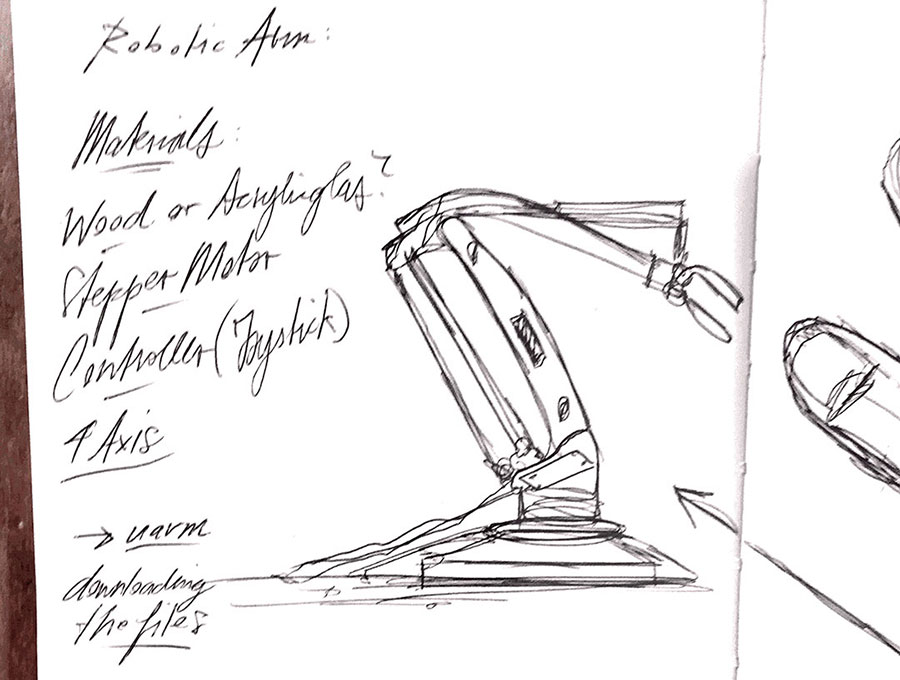 Robotic Arm:
Materials:
Wood or Acrylinglas?
Stepper Motor
Controller (Joystick)
4 Axis
→ uarm
downloading
the files